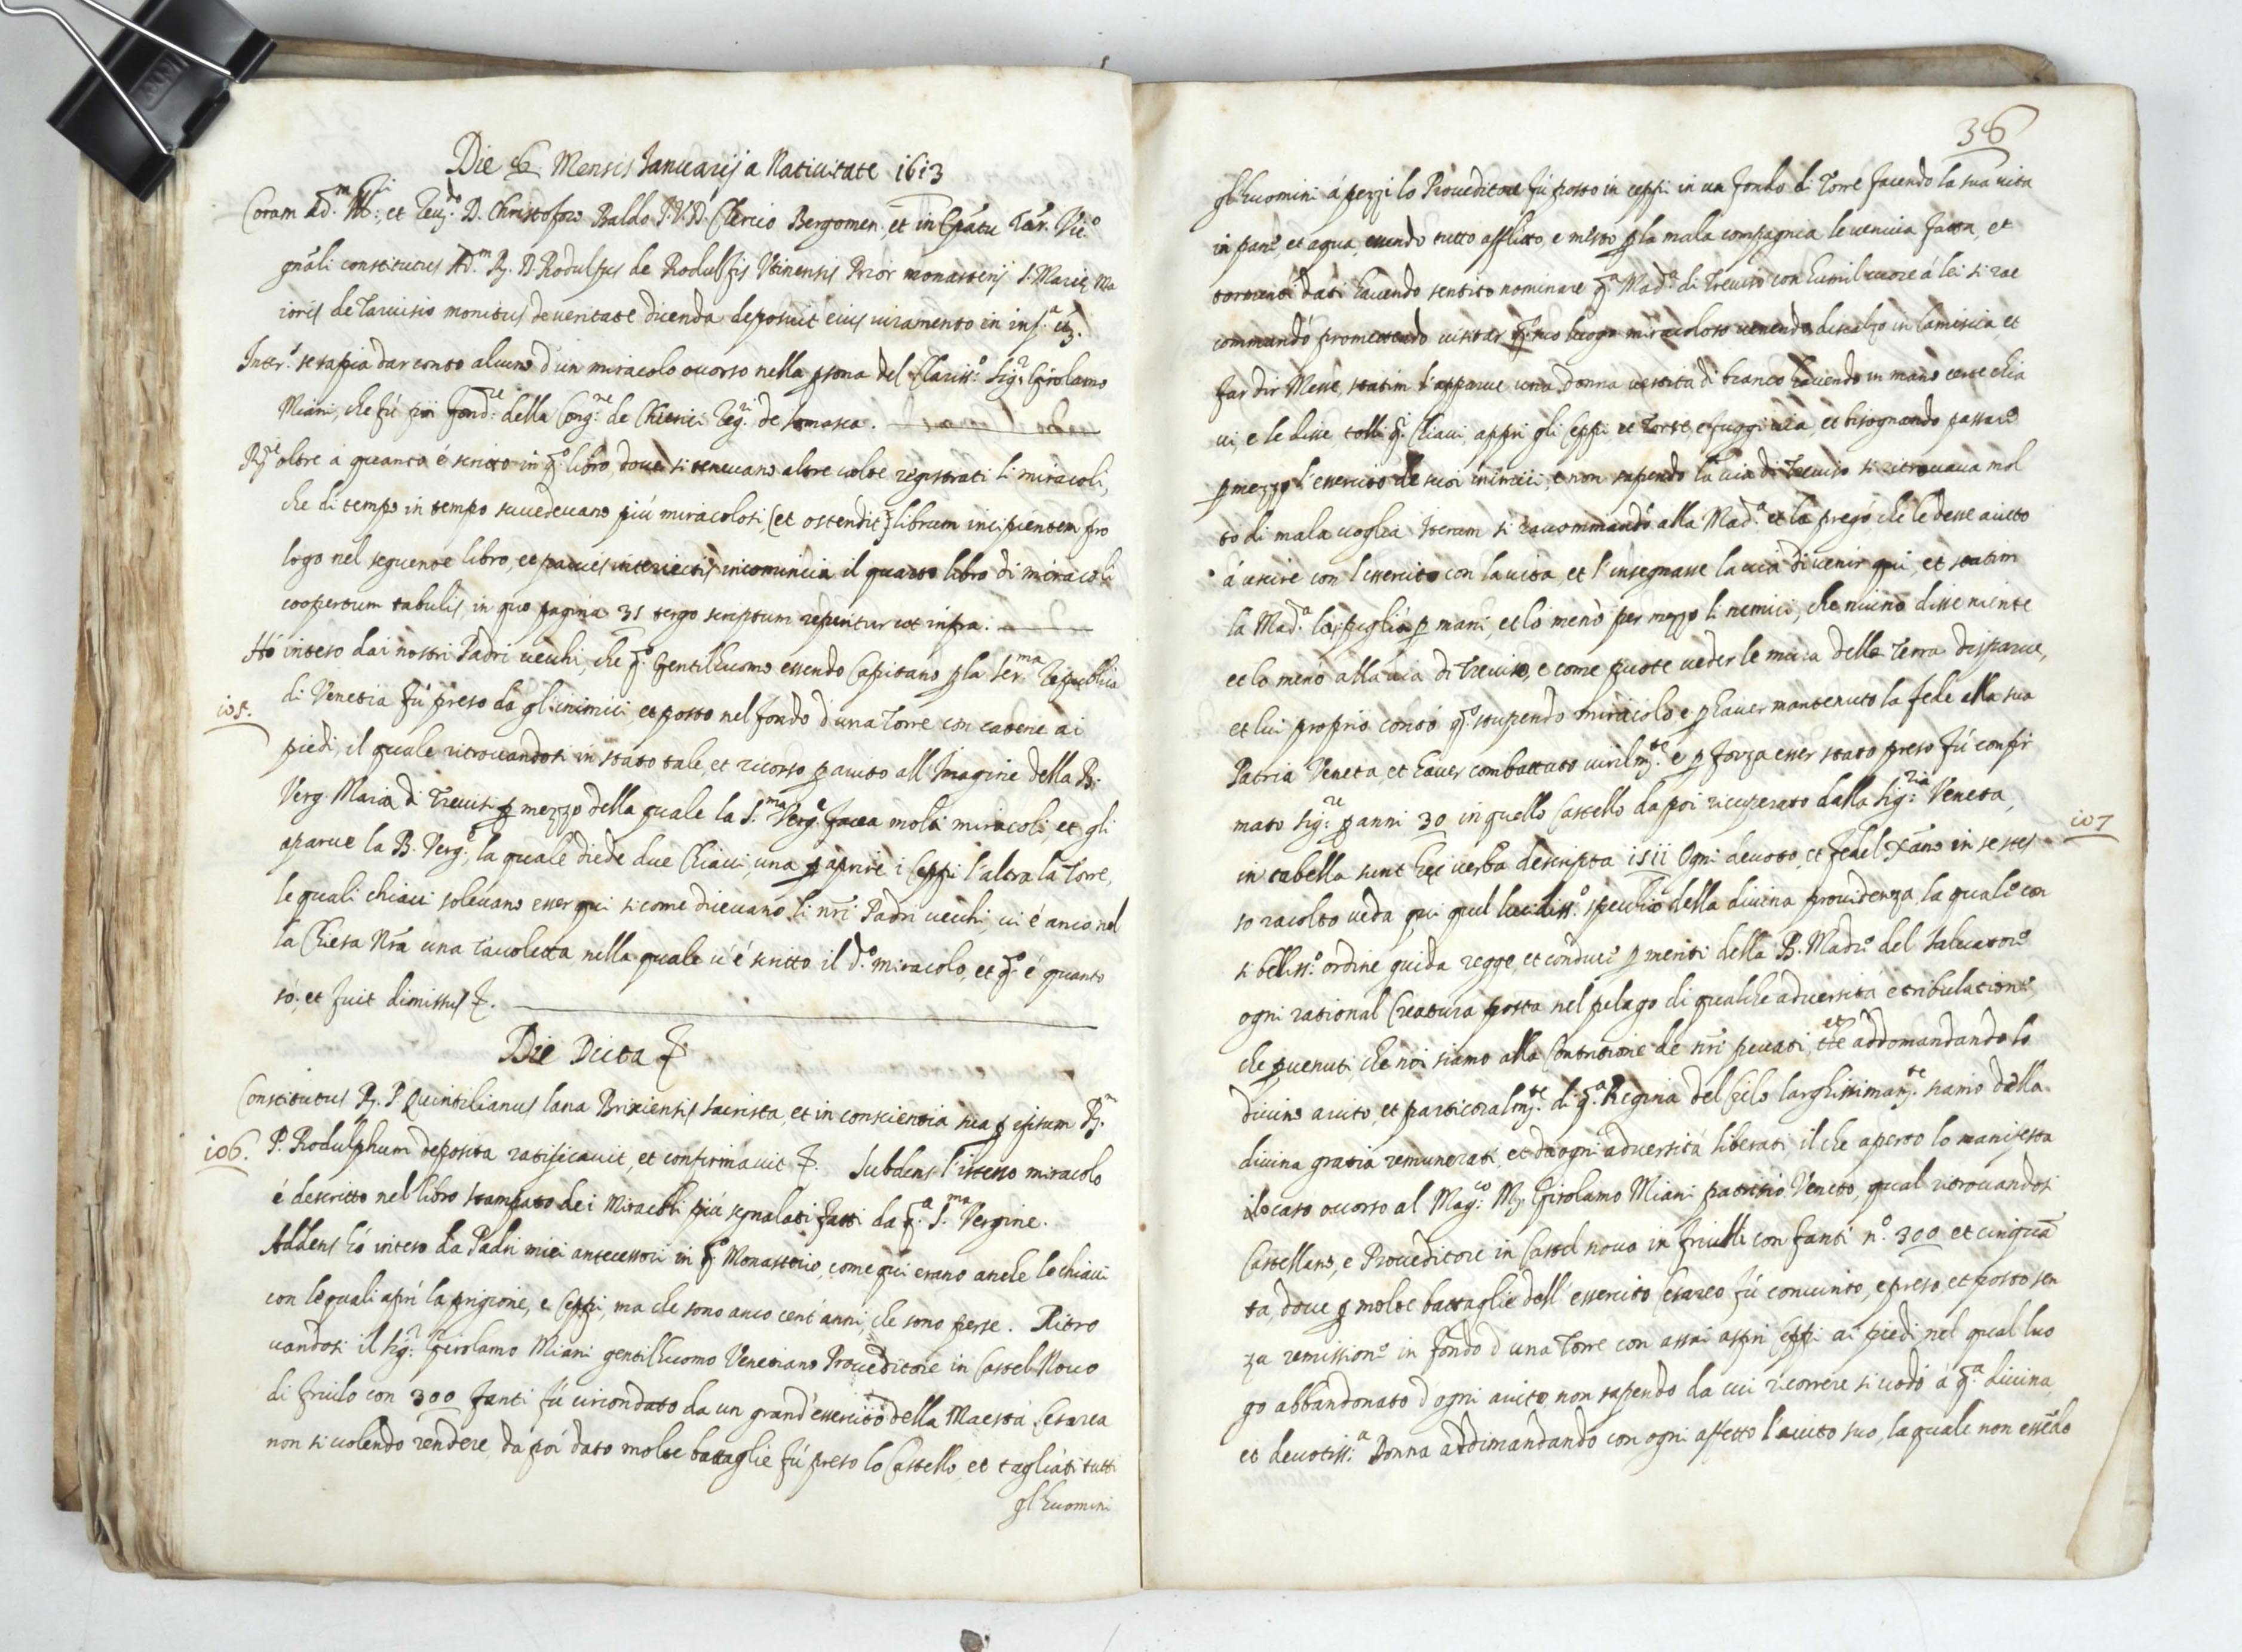 Die 6 Mensis Januarij a Natiuitate 1613
Coram Ad.m Ill: et Reu.do D. Christoforo Baldo I.V.D. Clerico Bergomen. et in Epātu Tar. Vic.o
gnāli constitutus Ad.m R. D. Rodulfus de Rodulfis Vtinensis Prior monasterij S. Marię Ma
ioris de Taruisio monitus de veritate dicenda deposuit eius iuramento in inf.a
Inter.s se sapia dar conto alcuno d'un miracolo occorso nella psona del Clariss.o Sig.r Girolamo
Miani, che fú poi fond.re della Cong.ne de Chierici Reg.ri de somasca.
R.de oltre á quanto é scritto in q.o libro, doue si teneuano altre uolte registrati li miracoli,
che di tempo in tempo succedeuano piú miracolosi, (et ostendit) librum incipientem pro
logo nel seguente libro, et paucis interiectis incomincia il quarto libro di miracoli
coopertum tabulis, in quo pagina 31 tergo scriptum reperitur ut infra.
Hó inteso dai nostri Padri uecchi, che q.o Gentilhuomo essendo Capitano p la Ser.ma Republica
105. di Venetia fú preso da gl'inimici et posto nel fondo d'una Torre con catene ai
piedi, il quale ritrouandosi in stato tale, et ricorso p aiuto all'Imagine della B.
Verg. Maria di Treuisi p mezzo della quale la S.ma Verg.e facea molti miracoli, et gli
aparue la B. Verg.e, la quale diede due Chiaui, una p aprire i Ceppi l'altra la Torre,
le quali chiaui soleuano esser qui sicome diceuano li nri Padri uecchi, ui é anco nel
la Chiesa Nrā una Tauoletta nella quale u'é scritto il d.o miracolo, et q.o é quanto
só, et fuit dimissus &.
Die Dicta &
Constitutus R. P. Quintilianus lana Brixiensis sacrista, et in conscientia sua p ipsum R.m
106. P. Rodulphum deposita ratificauit, et confirmauit &. Subdens l'istesso miracolo
é descritto nel libro stampato de i Miracoli piú segnalati fatti da q.a S.ma Vergine.
Addens hó inteso da Padri miei antecessori in q.o Monasterio, come qui erano anche le chiaui
con le quali aprí la prigione, e Ceppi, ma che sono anco cent'anni, che sono perse. Ritro
uandosi il Sig.r Girolamo Miani gentilhuomo Venetiano Proueditore in Castel Nouo
di friulo con 300 fanti fú circondato da un grand'essercito della Maestá Cesarea
non si uolendo rendere, da poi dato molte battaglie fú preso lo Castello, et tagliati tutti
gl'huomini
36
gl'huomini á pezzi lo Proueditore fú posto in ceppi in un fondo di Torre facendo la sua uita
in pane, et aqua, essendo tutto afflitto, e mesto p la mala compagnia le ueniua fatta, et
tormenti dati hauendo sentito nominare q.a Mad.a di Treuiso con humil cuore á lei si rac
commandó promettendo uisitar q.o suo luogo miracoloso uenendo discalzo in camiscia, et
far dir Messe, statim l'apparue una Donna uestita di bianco hauendo in mano certe chia
ui, e le disse, tolli q.i Chiaui, appri gli Ceppi et Torre, e fuggi uia, et bisognando passare
p mezzo l'essercito de suoi inimici, e non sapendo la uia di Treuiso si ritrouaua mol
to di mala uoglia iterum si racommandó alla Mad.a et la pregó che le desse aiuto
á uscire con l'essercito con la uita, et l'insegnasse la uia di uenir qui, et statim
la Mad.a lo pigliò p mani, et lo menò per mezzo li nemici, che niuno disse niente
et lo menó alla uia di Treuiso, e come puote ueder le mura della Terra disparue,
et lui proprio contó q.o stupendo miracolo e p hauer mantenuto la fede alla sua
Patria Veneta, et hauer combattuto uirilm.te e p forza esser stato preso fú confir
mato Sig.re p anni 30 in quello Castello da poi ricuperato dalla Sig.ria Veneta,
in tabella sunt hęc uerba descripta 1511 Ogni deuoto, et fedel Xāno in se stes 107
so racolto ueda qui quel lucidiss.o specchio della diuina prouidenza, la quale con
si belliss.o ordine guida regge, et conduce p meriti della B. Madre del Saluatore
ogni rational Creatura posta nel pelago di qualche aduersitá e tribulatione,
che puenuti che noi siamo alla Contritione de nri peccati, et addomandando lo
diuino aiuto, et particoralm.te di q.a Regina del Cielo larghissimam.te siamo dalla
diuina gratia remunerati, et da ogni aduersitá liberati il che aperto lo manifesta
lo caso occorso al Mag.co M. Girolamo Miani patritio Veneto, qual ritrouandosi
Castellano, e Proueditore in Castel nouo in friulli con fanti n.o 300 et cinquā
ta, doue p molte battaglie dell'essercito Cesareo fú conuinto, e preso, et posto sen
za remissione in fondo d'una Torre con assai aspri Ceppi ai piedi nel qual luo
go abbandonato d'ogni aiuto, non sapendo da cui ricorrere si uodó á q.a diuina,
et deuotiss.a Donna addimandando con ogni affetto l'aiuto suo, la quale non essēdo